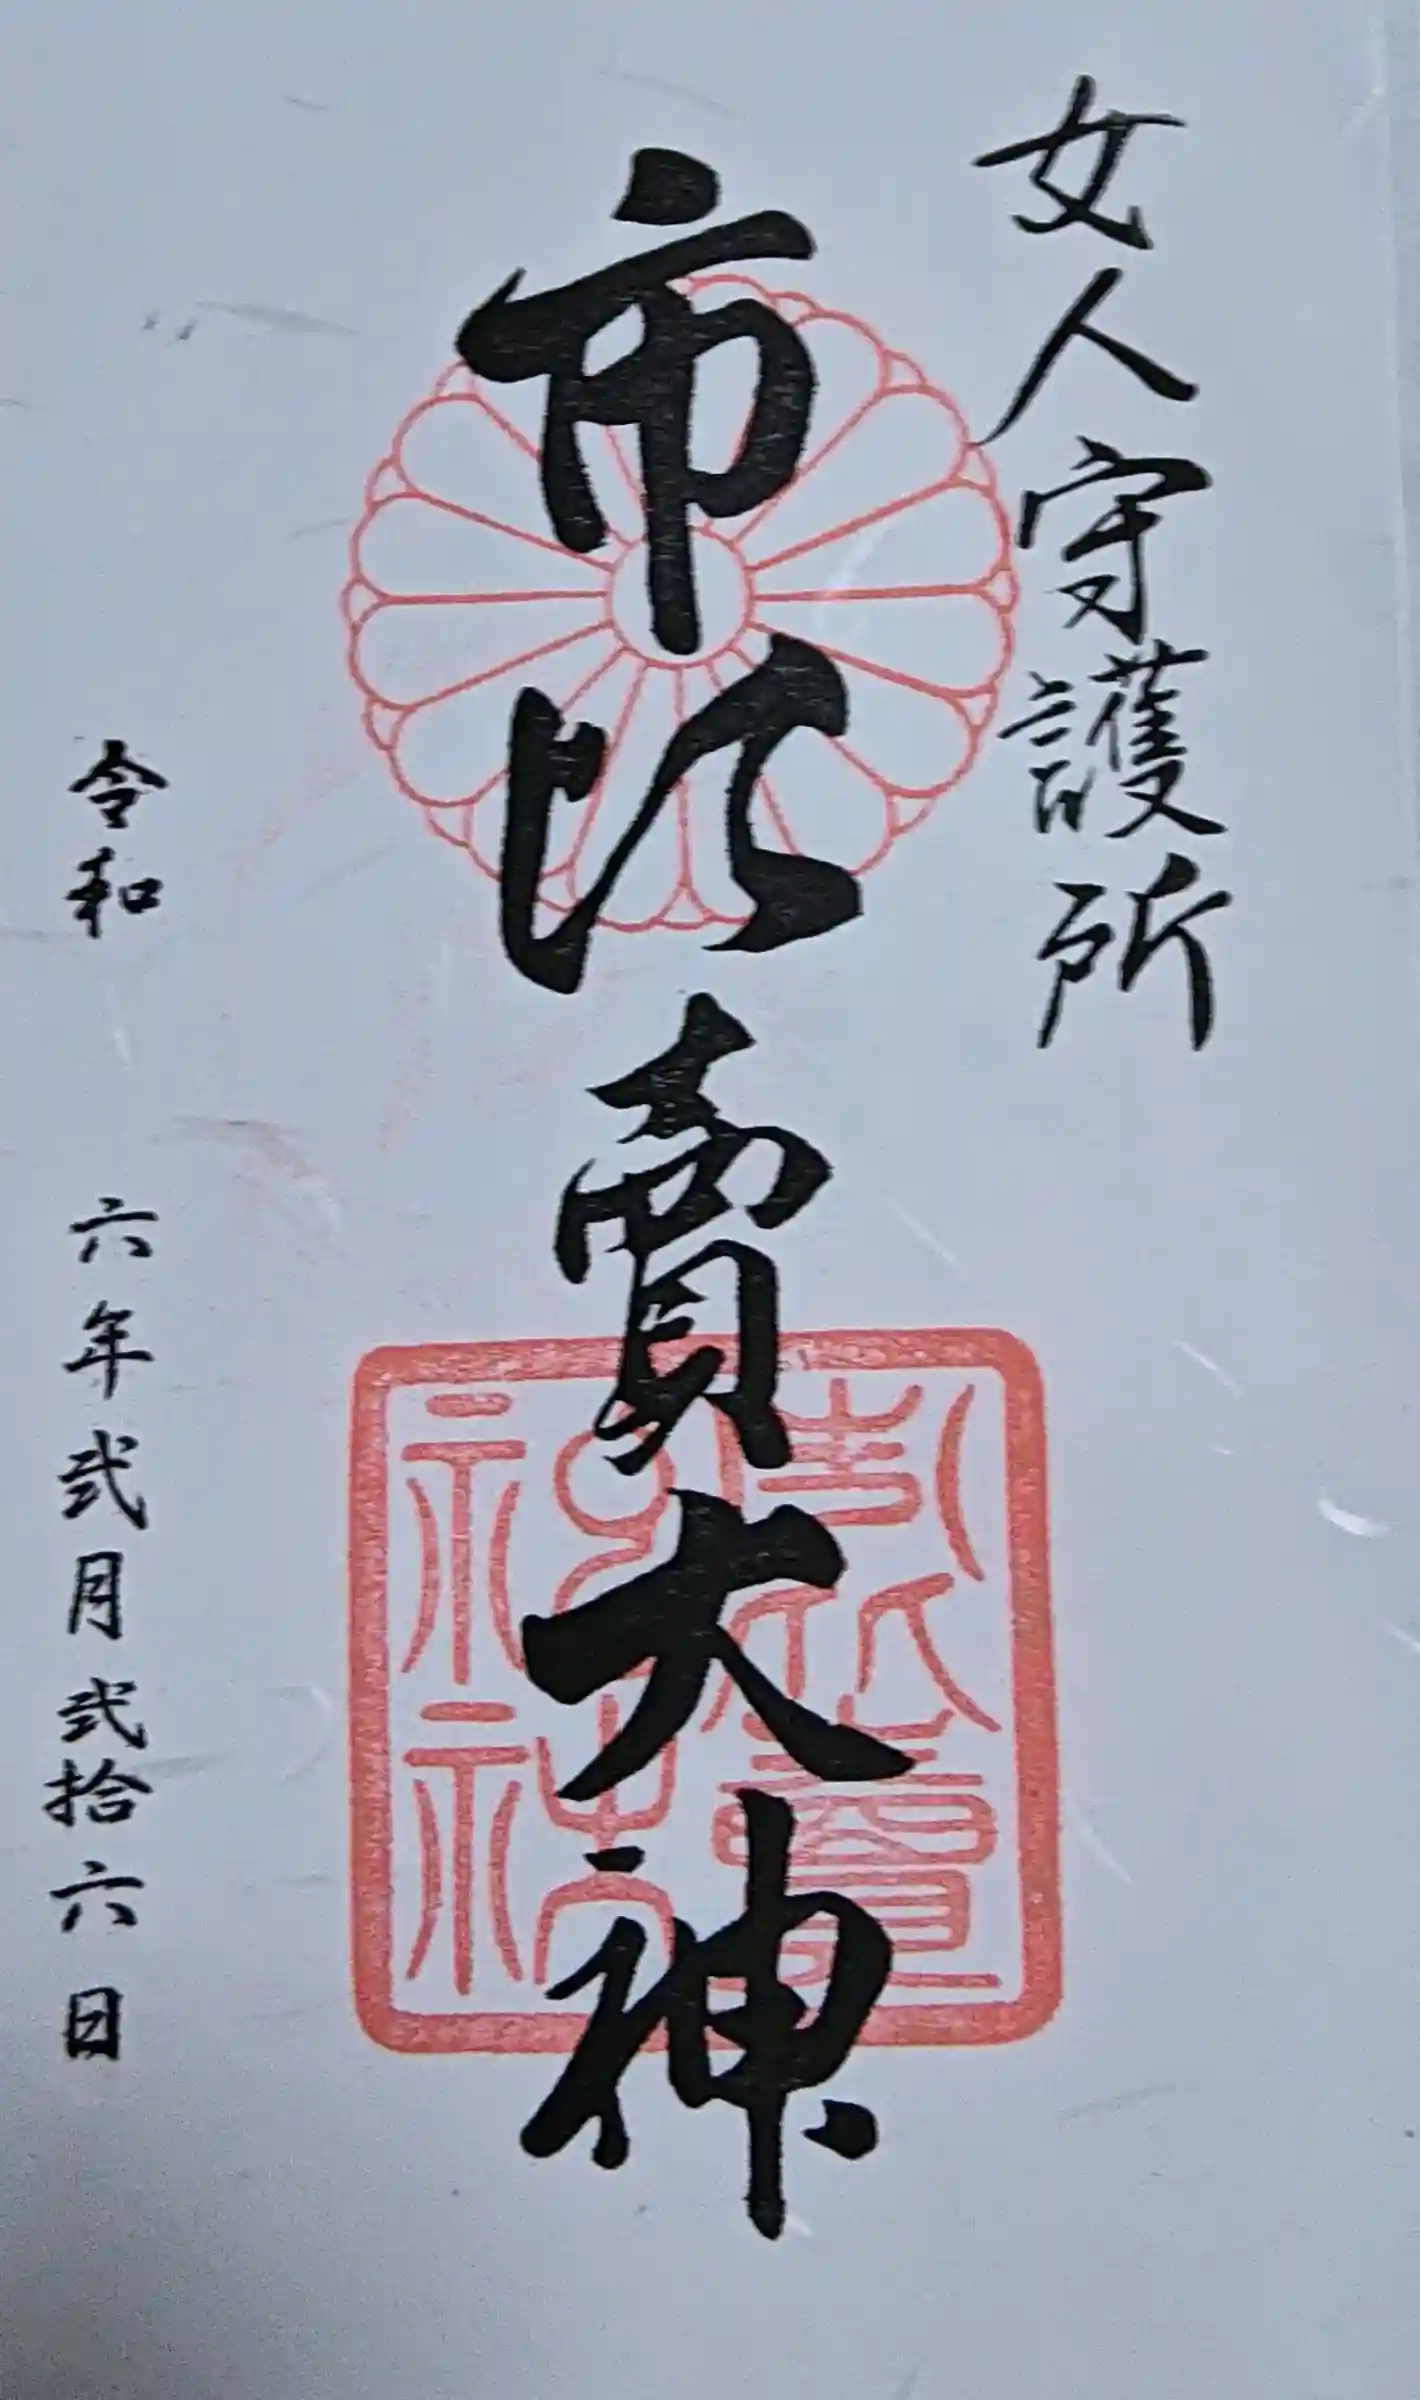 女人守護所
市比賣大神
令和 六年弐月弐拾六日